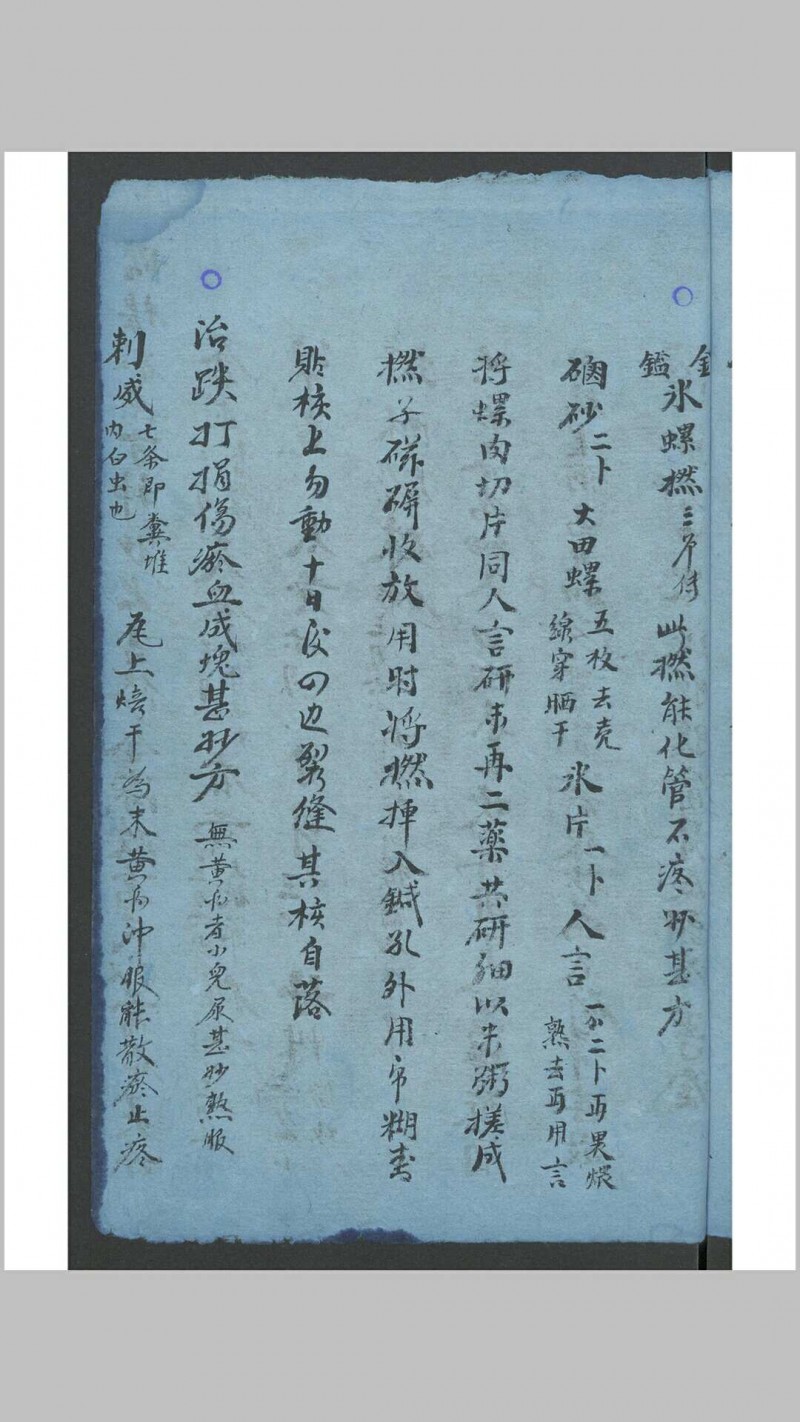 金鑑氷螺撚三品侍此撚能化管不疼妙甚方
硇砂二卜大田螺五枚去壳線穿晒干氷片一卜人言一分二卜再果煨熟去再用言
将螺肉切片同人言研末再二薬共研細以米粥搓成
撚子磁礶收放用时将撚挿入鍼孔外用帋糊封
貼核上勿動十日後四边裂縫其核自落
治跌打損傷瘀血成塊甚妙方無黄酒者小兒尿甚妙熱服
刺威七条即糞堆内白虫也尾上焙干為末黄酒冲服能散瘀止疼